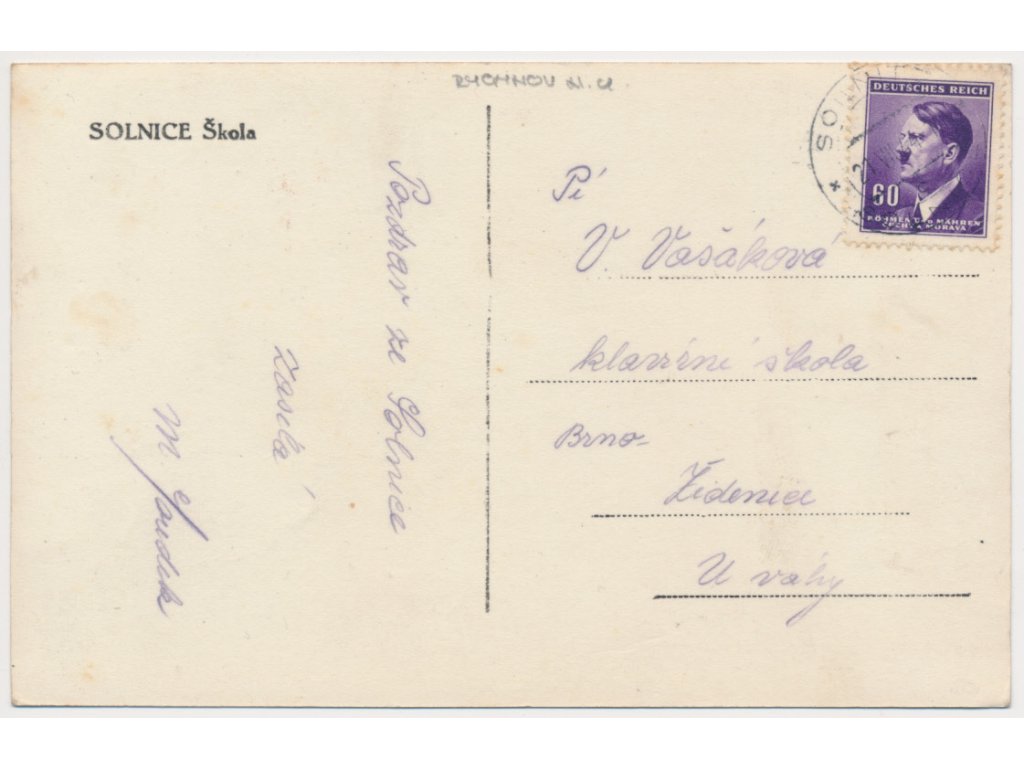 RYCHNOV N. K
SOLNICE Škola
Pozdrav ze Solnice
zasílá
M Soudek
Pí
V. Vašáková
klavírní škola
Brno-
Židenice
U váhy
DEUTSCHES REICH
60
BÖHMEN UND MÄHREN
ČECHY A MORAVA